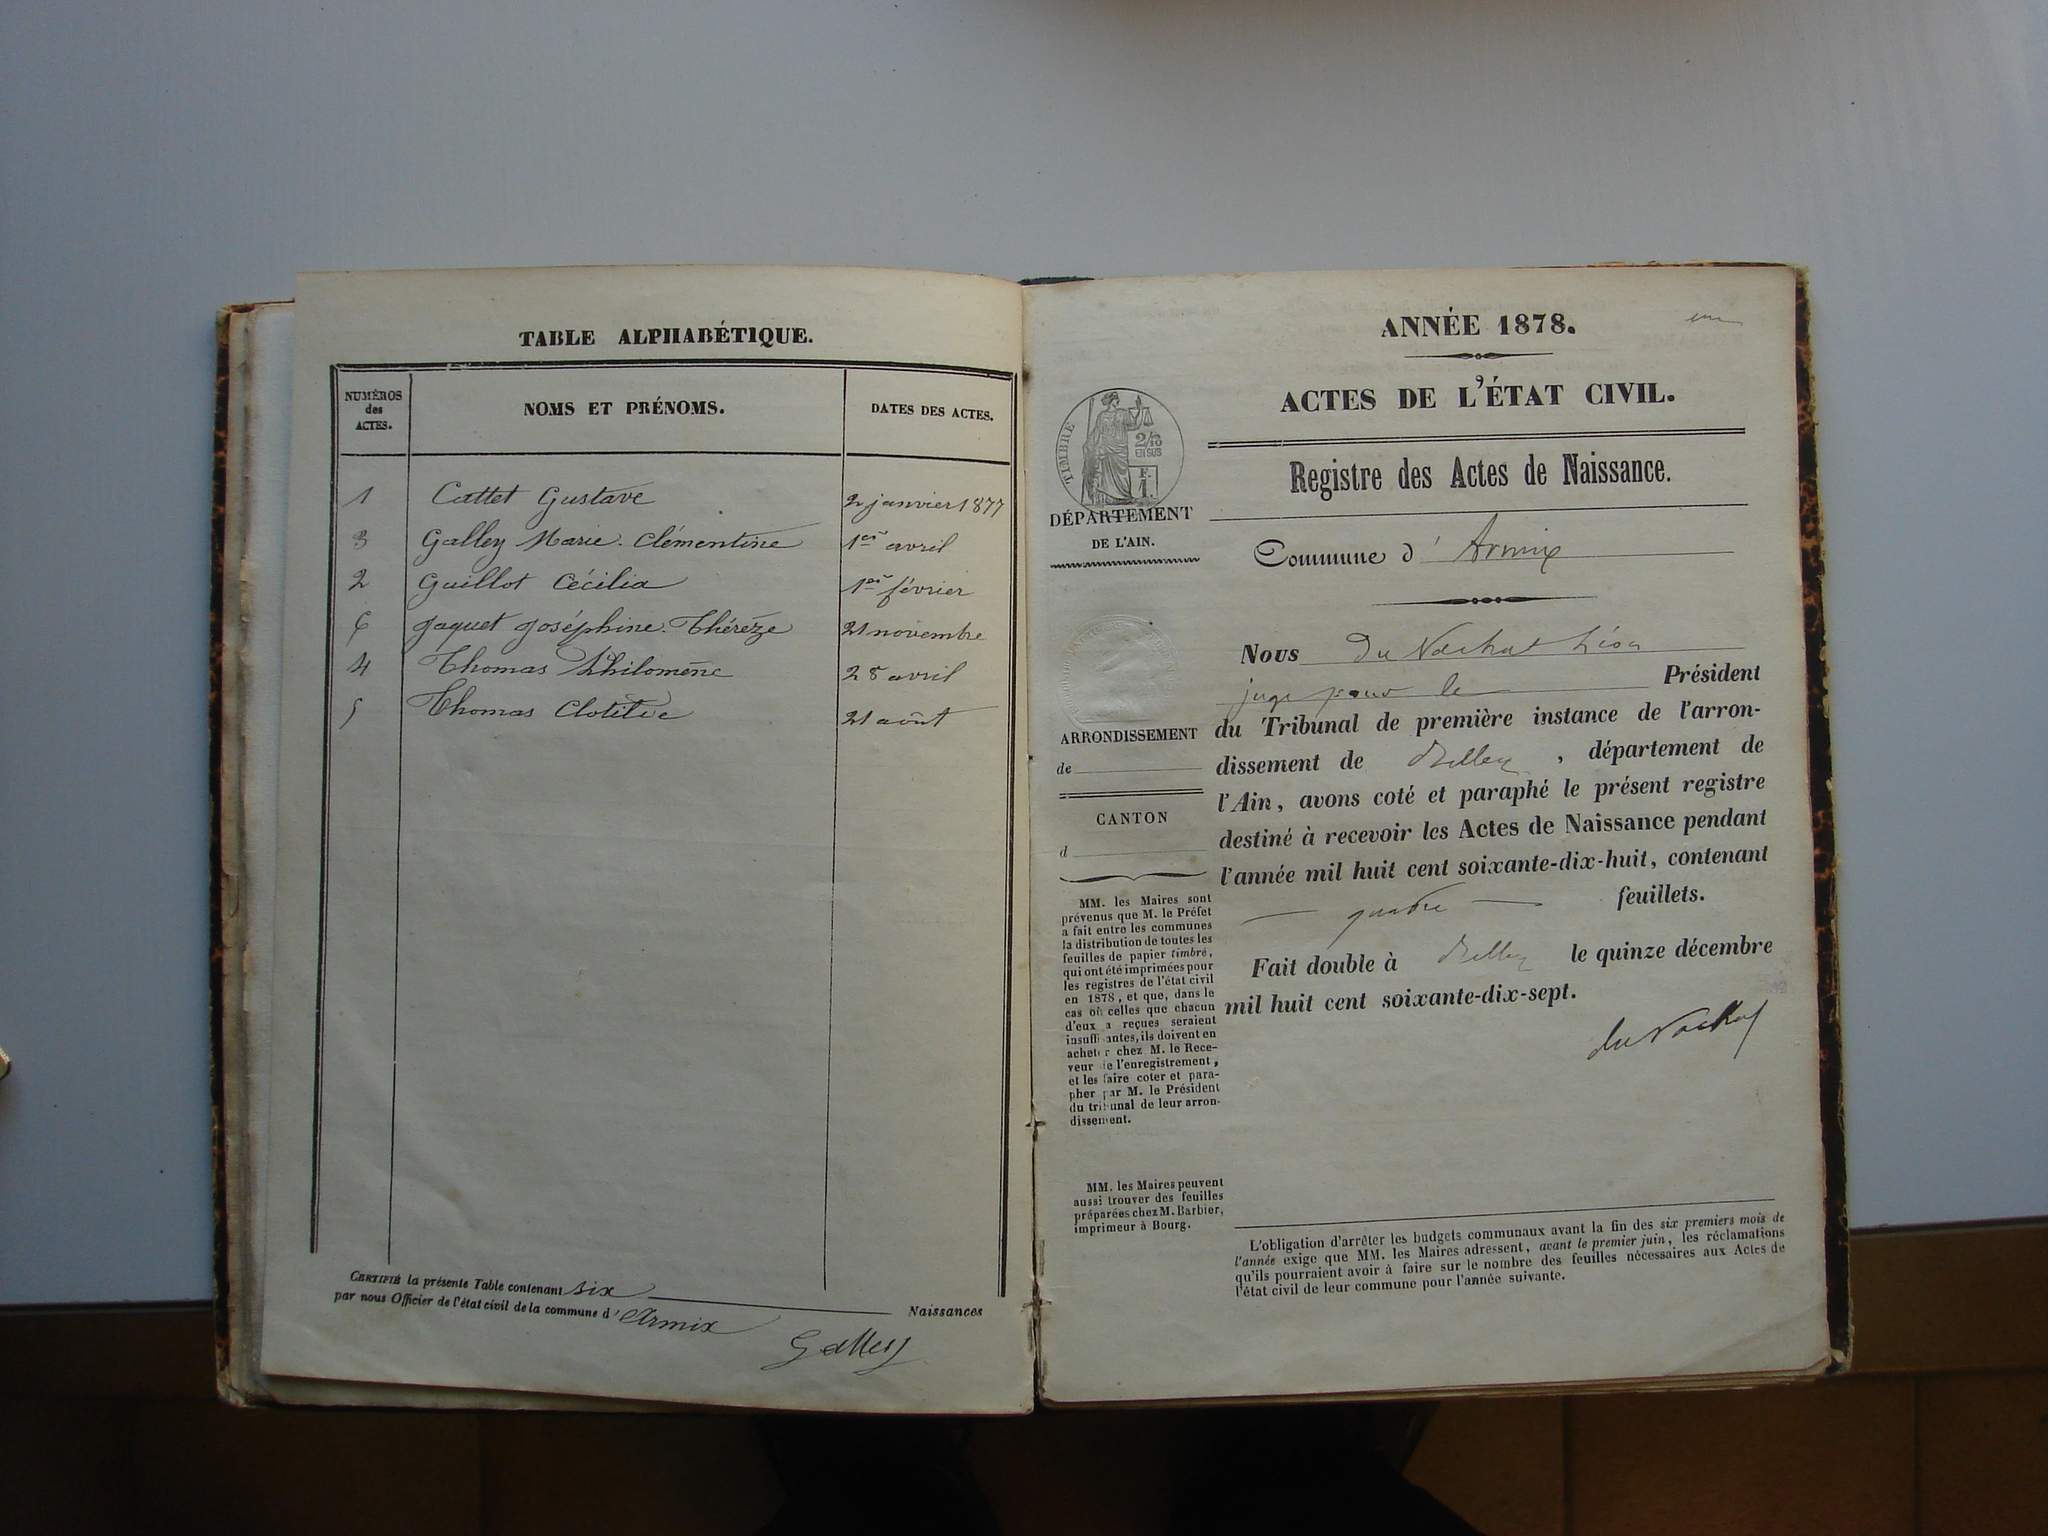 TABLE ALPHABÉTIQUE.
NUMÉROS des ACTES.
NOMS ET PRÉNOMS.
DATES DES ACTES.
1 Cattet Gustave 2 janvier 1877
3 Galley Marie. Clémentine 1er avril
2 Guillot Cécilia 1er février
6 Jaquet Joséphine. Thérèze 21 novembre
4 Thomas Philomène 28 avril
5 Thomas Clotilde 21 août
CERTIFIÉ la présente Table contenant six Naissances
par nous Officier de l'état civil de la commune d' Armix
Galley
ANNÉE 1878.
ACTES DE L'ÉTAT CIVIL.
Registre des Actes de Naissance.
Commune d' Armix
TIMBRE
2/10
EN SUS
F.
1.
DÉPARTEMENT
DE L'AIN.
ARRONDISSEMENT
de
CANTON
d
MM. les Maires sont
prévenus que M. le Préfet
a fait entre les communes
la distribution de toutes les
feuilles de papier timbré,
qui ont été imprimées pour
les registres de l'état civil
en 1878, et que, dans le
cas où celles que chacun
d'eux a reçues seraient
insuffisantes, ils doivent en
acheter chez M. le Rece-
veur de l'enregistrement,
et les faire coter et para-
pher par M. le Président
du tribunal de leur arron-
dissement.
MM. les Maires peuvent
aussi trouver des feuilles
préparées chez M. Barbier,
imprimeur à Bourg.
Nous du Vachat Léon
juge pour le Président
du Tribunal de première instance de l'arron-
dissement de Belley, département de
l'Ain, avons coté et paraphé le présent registre
destiné à recevoir les Actes de Naissance pendant
l'année mil huit cent soixante-dix-huit, contenant
quatre feuillets.
Fait double à Belley le quinze décembre
mil huit cent soixante-dix-sept.
du Vachat
L'obligation d'arrêter les budgets communaux avant la fin des six premiers mois de
l'année exige que MM. les Maires adressent, avant le premier juin, les réclamations
qu'ils pourraient avoir à faire sur le nombre des feuilles nécessaires aux Actes de
l'état civil de leur commune pour l'année suivante.